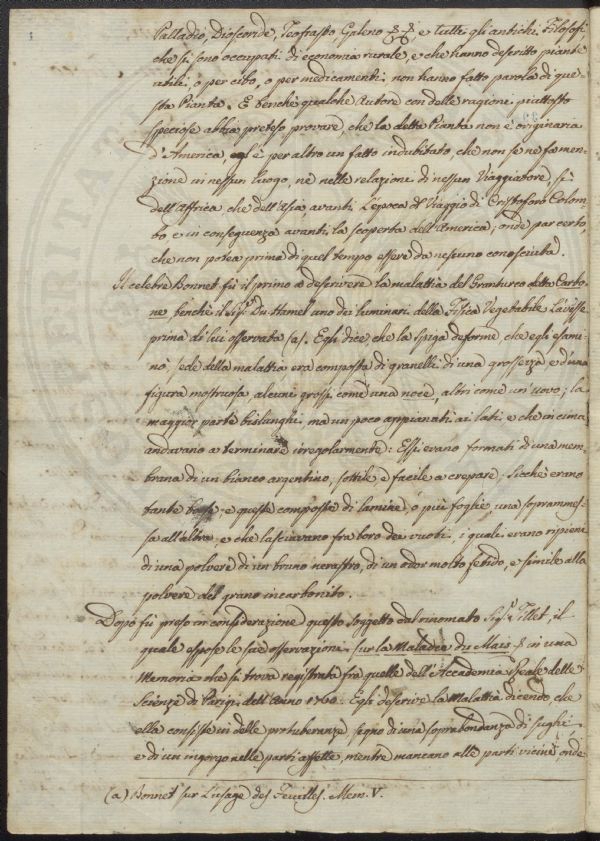 Palladio, Dioscoride, Teofrasto Galeno &. &. e tutti gli antichi Filosofi
che si sono occupati di economia rurale, e che hanno descritto piante
utili, o per cibo, o per medicamenti non hanno fatto parola di que=
sta Pianta. E benchè qualche Autore con delle ragioni piuttosto
speciose abbia preteso provare, che la detta Pianta non è originaria
d'America, egl'è per altro un fatto indubitato, che non se ne fa men=
zione in nessun luogo, nè nelle relazioni di nessun Viaggiatore sì
dell'Affrica che dell'Asia, avanti l'epoca del Viaggio di Cristoforo Colom
bo e in conseguenza avanti la scoperta dell'America; onde par certo,
che non potea prima di quel tempo essere da nessuno conosciuta.
Il celebre Bonnet fù il primo a descrivere la malattia del Granturco detta Carbo=
ne benchè il Sig.r Du-Hamel uno dei luminari della Fisica Vegetabile l'avesse
prima di lui osservata (a). Egli dice che la spiga deforme, che egli esami=
nò, sede della malattia era composta di granelli di una grossezza e d'una
figura mostruosa, alcuni grossi come una noce, altri come un uovo; la
maggior parte bislunghi, ma un poco appianati ai lati e che in cima
andavano a terminare irregolarmente: Essi erano formati di una mem=
brana di un bianco argentino, sottile e facile a crepare; sicchè erano
tante borse e queste composte di lamine, o più foglie, una soprammes=
sa all'altra, e che lasciavano fra loro dei vuoti, i quali erano ripieni
di una polvere di un bruno nerastro, di un odor molto fetido, e simile alla
polvere del grano incarbonito.
Dopo fù preso in considerazione questo soggetto dal rinomato Sig.r Tillet, il
quale espose le sue osservazioni sur la Maladie du Mais &. in una
Memoria che si trova registrata fra quelle dell'Accademia Reale delle
Scienze di Parigi dell'Anno 1760. Egli descrive la Malattia dicendo, che
ella consiste in delle protuberanze segno di una soprabbondanza di sughi
e di un ingorgo nelle parti affette, mentre mancano alle parti vicine onde
(a) Bonnet sur l'usage des Feuilles. Mem. V.